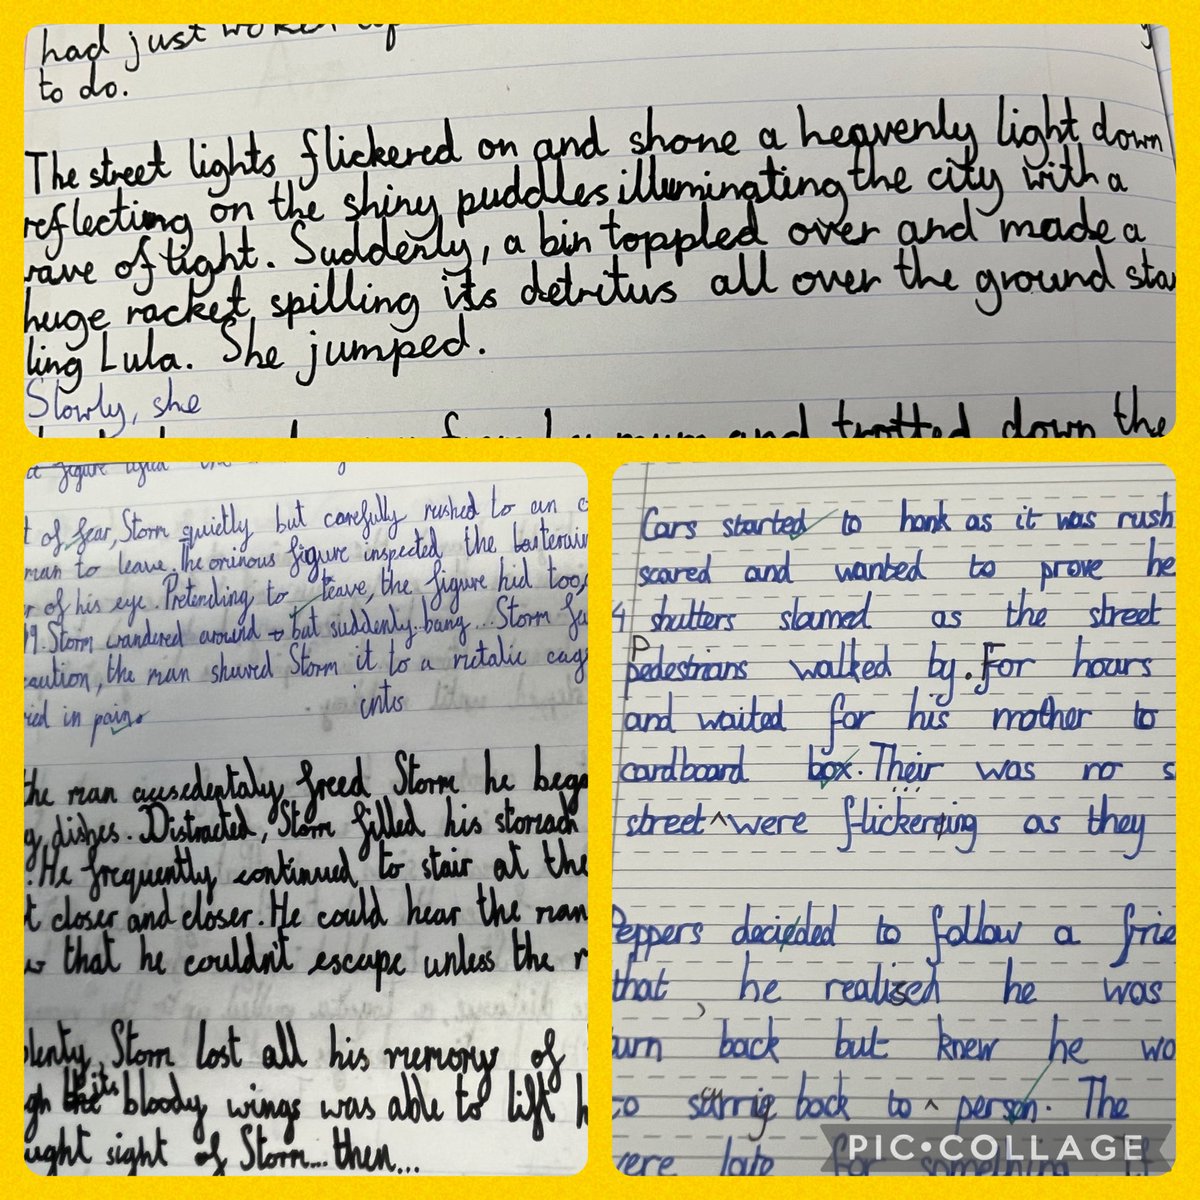 had just woken up
to do.
The street lights flickered on and shone a heavenly light down
reflecting on the shiny puddles illuminating the city with a
wave of light. Suddenly, a bin toppled over and made a
huge racket spilling its detritus all over the ground star
ling Lula. She jumped.
Slowly, she
mum and trotted down the
figure
of fear, Storm quietly but carefully rushed to an
man to leave. The ominous figure inspected the
of his eye. Pretending to leave, the figure hid too,
Storm wandered around but suddenly. bang... Storm
caution, the man shuved Storm it to a metalic cag
in pain.
into
the man accsedentaly freed Storm he bega
dishes. Distracted, Storm filled his stomach
He frequently continued to stair at the
closer and closer. He could hear the man
that he couldn't escape unless the
plenty, Storm lost all his memory of
its bloody wings was able to lift
sight of Storm... then...
Cars started to honk as it was rush
scared and wanted to prove he
4 shutters slamed as the street
pedestrians walked by. For hours
and waited for his mother to
cardboard box. Their was no s
street ^ were flickering as they
Peppers decided to follow a frie
that he realised he was
urn back but knew he wo
to back to ^ person. The
were late for something
PIC•COLLAGE